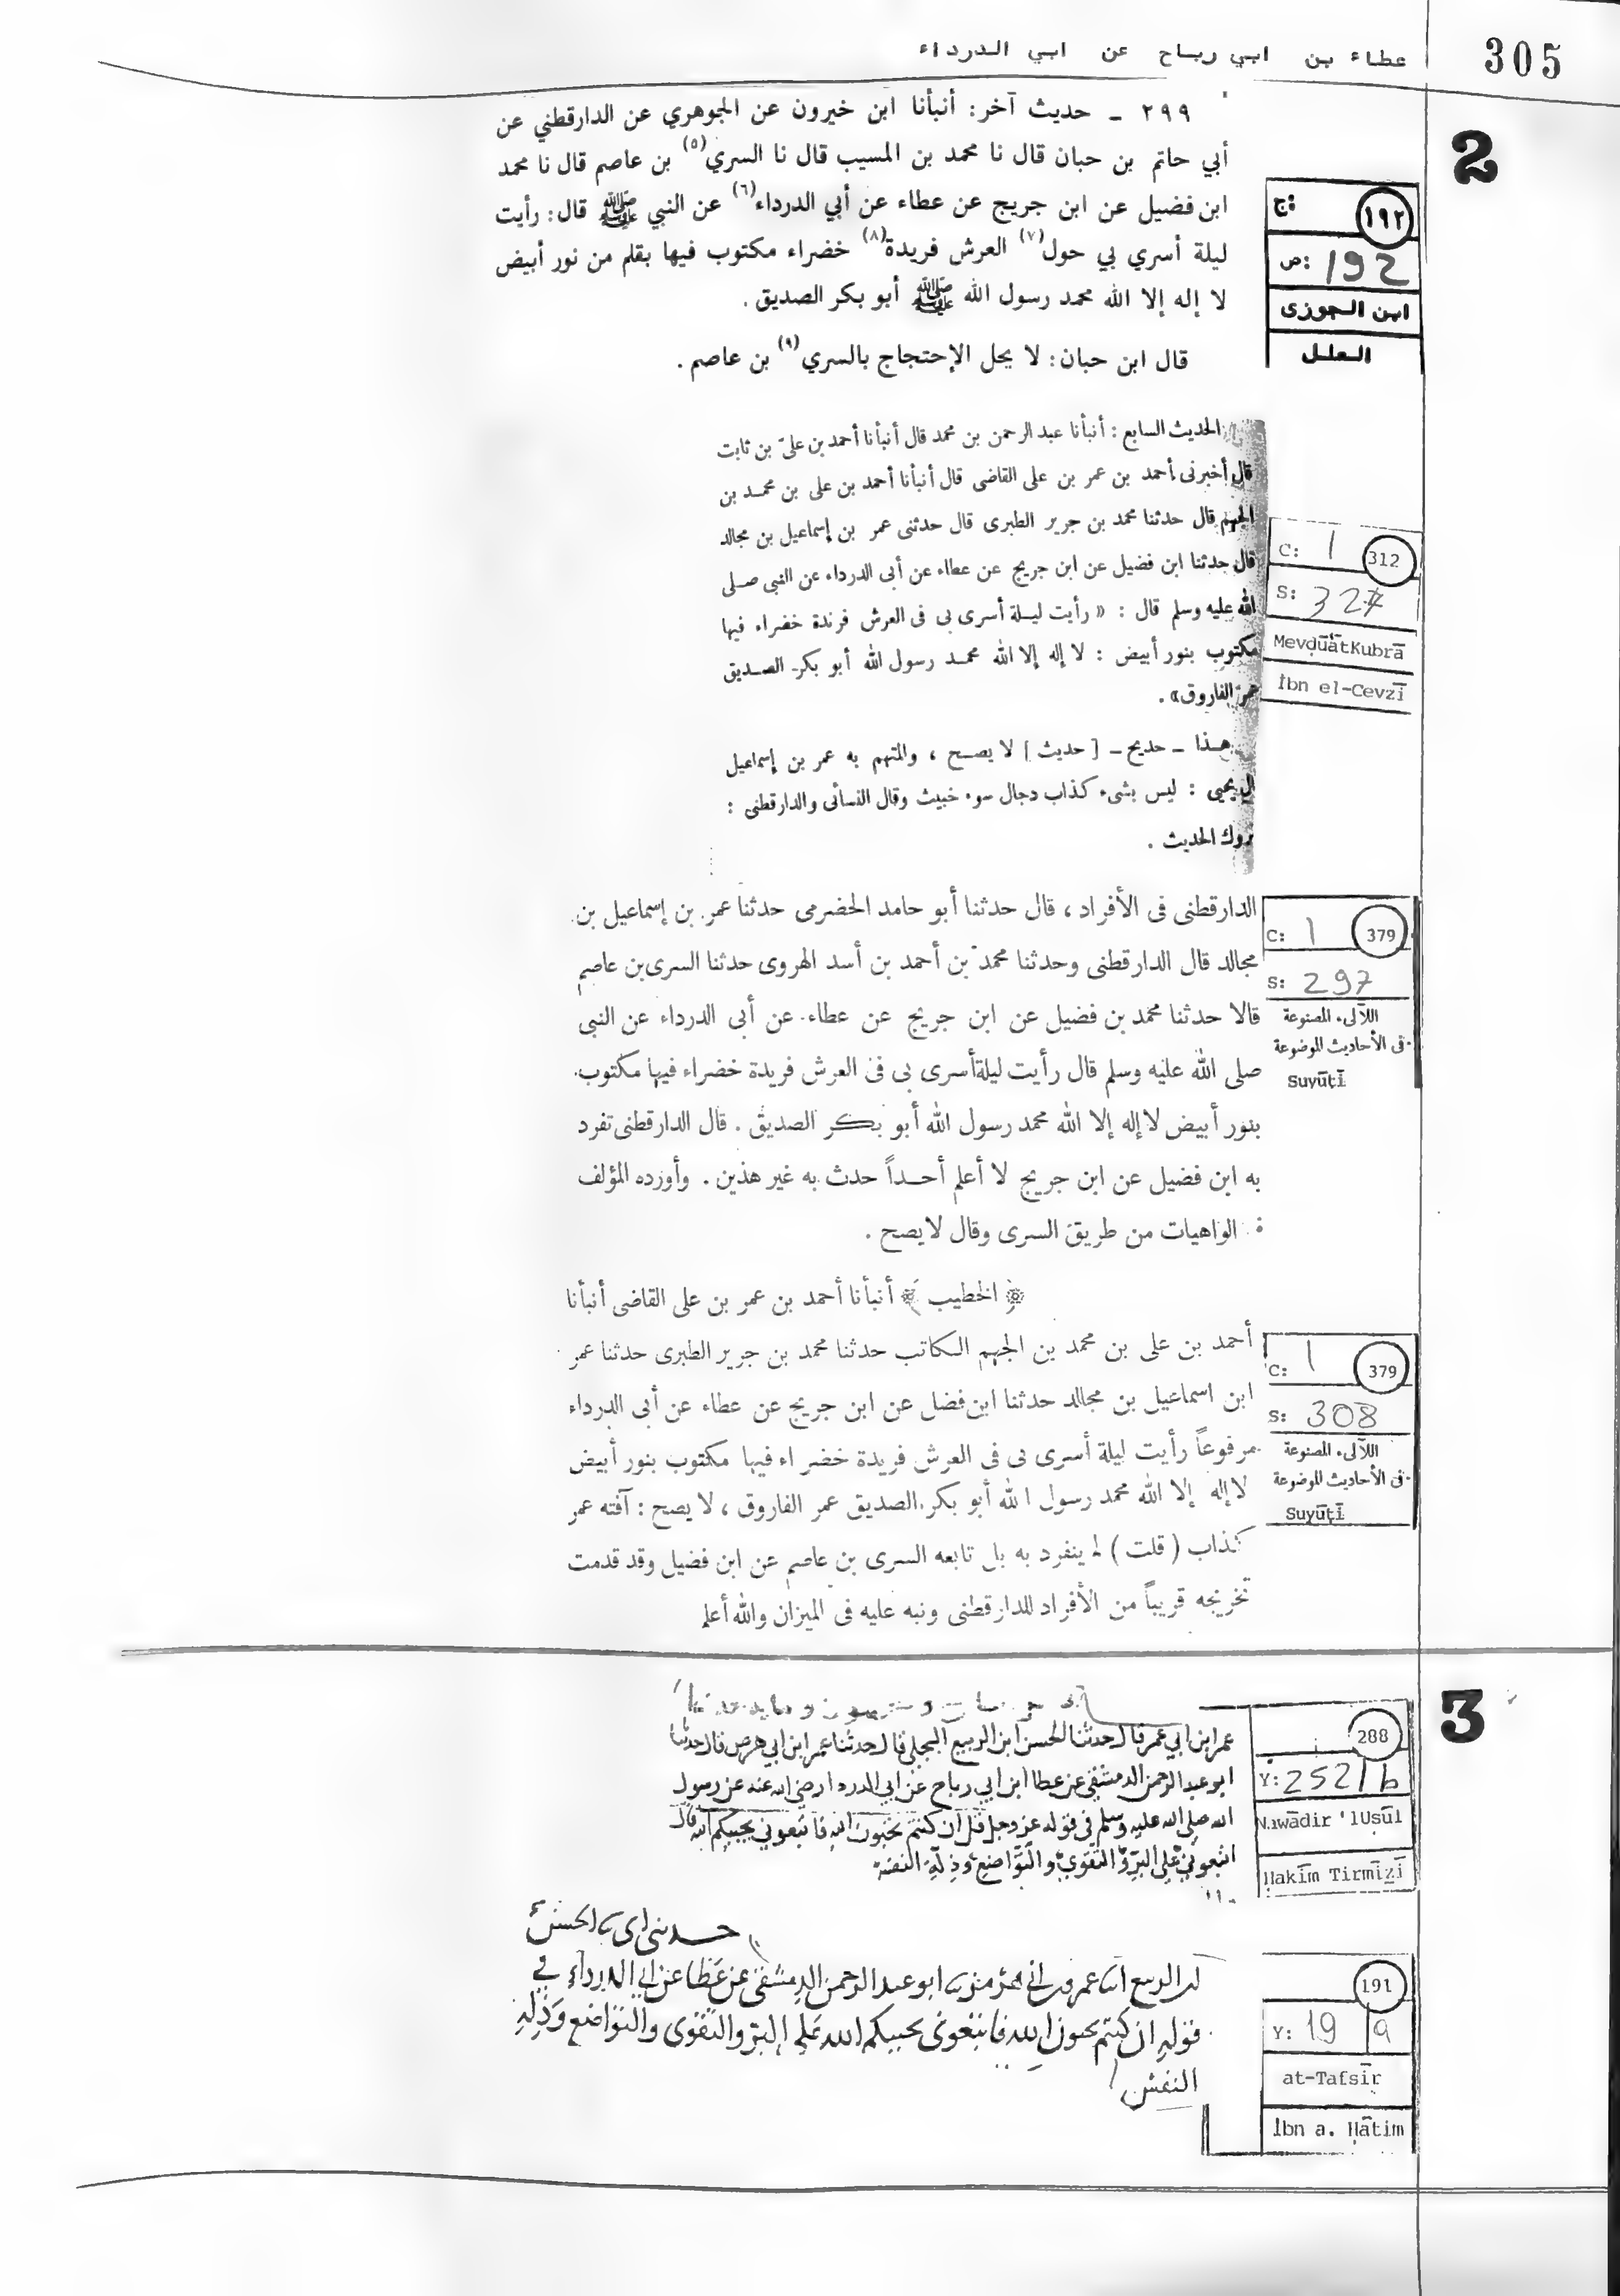 305
عطاء بن ابي رباح عن ابي الدرداء
2
٢٩٩ ـ حديث آخر: أنبأنا ابن خيرون عن الجوهري عن الدارقطني عن
أبي حاتم بن حبان قال نا محمد بن المسيب قال نا السري(٥) بن عاصم قال نا محمد
ابن فضيل عن ابن جريج عن عطاء عن أبي الدرداء(٦) عن النبي ﷺ قال: رأيت
ليلة أسري بي حول(٧) العرش فريدة(٨) خضراء مكتوب فيها بقلم من نور أبيض
لا إله إلا الله محمد رسول الله ﷺ أبو بكر الصديق .
قال ابن حبان: لا يحل الإحتجاج بالسري(٩) بن عاصم .
ج:
١٩٢
ص: 192
ابن الجوزى
العلل
الحديث السابع : أنبأنا عبد الرحمن بن محمد قال أنبأنا أحمد بن علىّ بن ثابت
قال أخبرنى أحمد بن عمر بن على القاضى قال أنبأنا أحمد بن على بن محمد بن
الجهم قال حدثنا محمد بن جرير الطبرى قال حدثنى عمر بن إسماعيل بن مجالد
قال حدثنا ابن فضيل عن ابن جريج عن عطاء عن أبى الدرداء عن النبى صلى
الله عليه وسلم قال : « رأيت ليلة أسرى بى فى العرش فرندة خضراء فيها
مكتوب بنور أبيض : لا إله إلا الله محمد رسول الله أبو بكر الصديق
عمر الفاروق» .
هذا ـ حديح ـ [ حديث ] لا يصح ، والمتهم به عمر بن إسماعيل
ل يحيى : ليس بشىء كذاب دجال سوء خبيث وقال النسائى والدارقطنى :
تروك الحديث .
C: 1
312
S: 327
Mevḍūāt Kubrā
İbn el-Cevzī
الدارقطنى فى الأفراد ، قال حدثنا أبو حامد الحضرمى حدثنا عمر بن إسماعيل بن
مجالد قال الدارقطنى وحدثنا محمد بن أحمد بن أسد الهروى حدثنا السرى بن عاصم
قالا حدثنا محمد بن فضيل عن ابن جريج عن عطاء عن أبى الدرداء عن النبى
صلى الله عليه وسلم قال رأيت ليلة أسرى بى فى العرش فريدة خضراء فيها مكتوب
بنور أبيض لا إله إلا الله محمد رسول الله أبو بكر الصديق . قال الدارقطنى تفرد
به ابن فضيل عن ابن جريج لا أعلم أحداً حدث به غير هذين . وأورده المؤلف
الواهيات من طريق السرى وقال لا يصح .
C: 1
379
S: 297
اللآلىء المصنوعة
فى الأحاديث الموضوعة
Suyūṭī
﴿ الخطيب ﴾ أنبأنا أحمد بن عمر بن على القاضى أنبأنا
أحمد بن على بن محمد بن الجهم الكاتب حدثنا محمد بن جرير الطبرى حدثنا عمر
ابن اسماعيل بن مجالد حدثنا ابن فضل عن ابن جريج عن عطاء عن أبى الدرداء
مرفوعاً رأيت ليلة أسرى بى فى العرش فريدة خضراء فيها مكتوب بنور أبيض
لا إله إلا الله محمد رسول الله أبو بكر الصديق عمر الفاروق ، لا يصح : آفته عمر
كذاب ( قلت ) لم ينفرد به بل تابعه السرى بن عاصم عن ابن فضيل وقد قدمت
تخريجه قريباً من الأفراد للدارقطنى ونبه عليه فى الميزان والله أعلم
C: 1
379
S: 308
اللآلىء المصنوعة
فى الأحاديث الموضوعة
Suyūṭī
3
عمر ابن ابي عمر قال حدثنا الحسن ابن الربيع البجلي قال حدثنا عمر ابن ابي هرمز قال حدثنا
ابو عبد الرحمن الدمشقي عن عطا ابن ابي رباح عن ابي الدردا رضي الله عنه عن رسول
الله صلى الله عليه وسلم في قوله عز وجل قل ان كنتم تحبون الله فاتبعوني يحببكم الله قال
اتبعوني على البر والتقوي والتواضع وذلة النفس
288
Y: 252/b
Nawādir 'l Uṣūl
Ḥakīm Tirmizī
حدثني ابي الحسن
الربيع عمر ابو عبد الرحمن الدمشقي عن عطا عن ابي الدرداء في
قوله ان كنتم تحبون الله فاتبعوني يحببكم الله على البر والتقوى والتواضع وذلة
النفس
191
Y: 19/a
at-Tafsīr
İbn a. Ḥātim